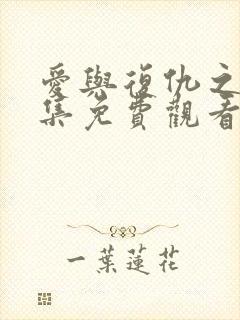 愛與復仇之
集免費觀看
一葉蓮花